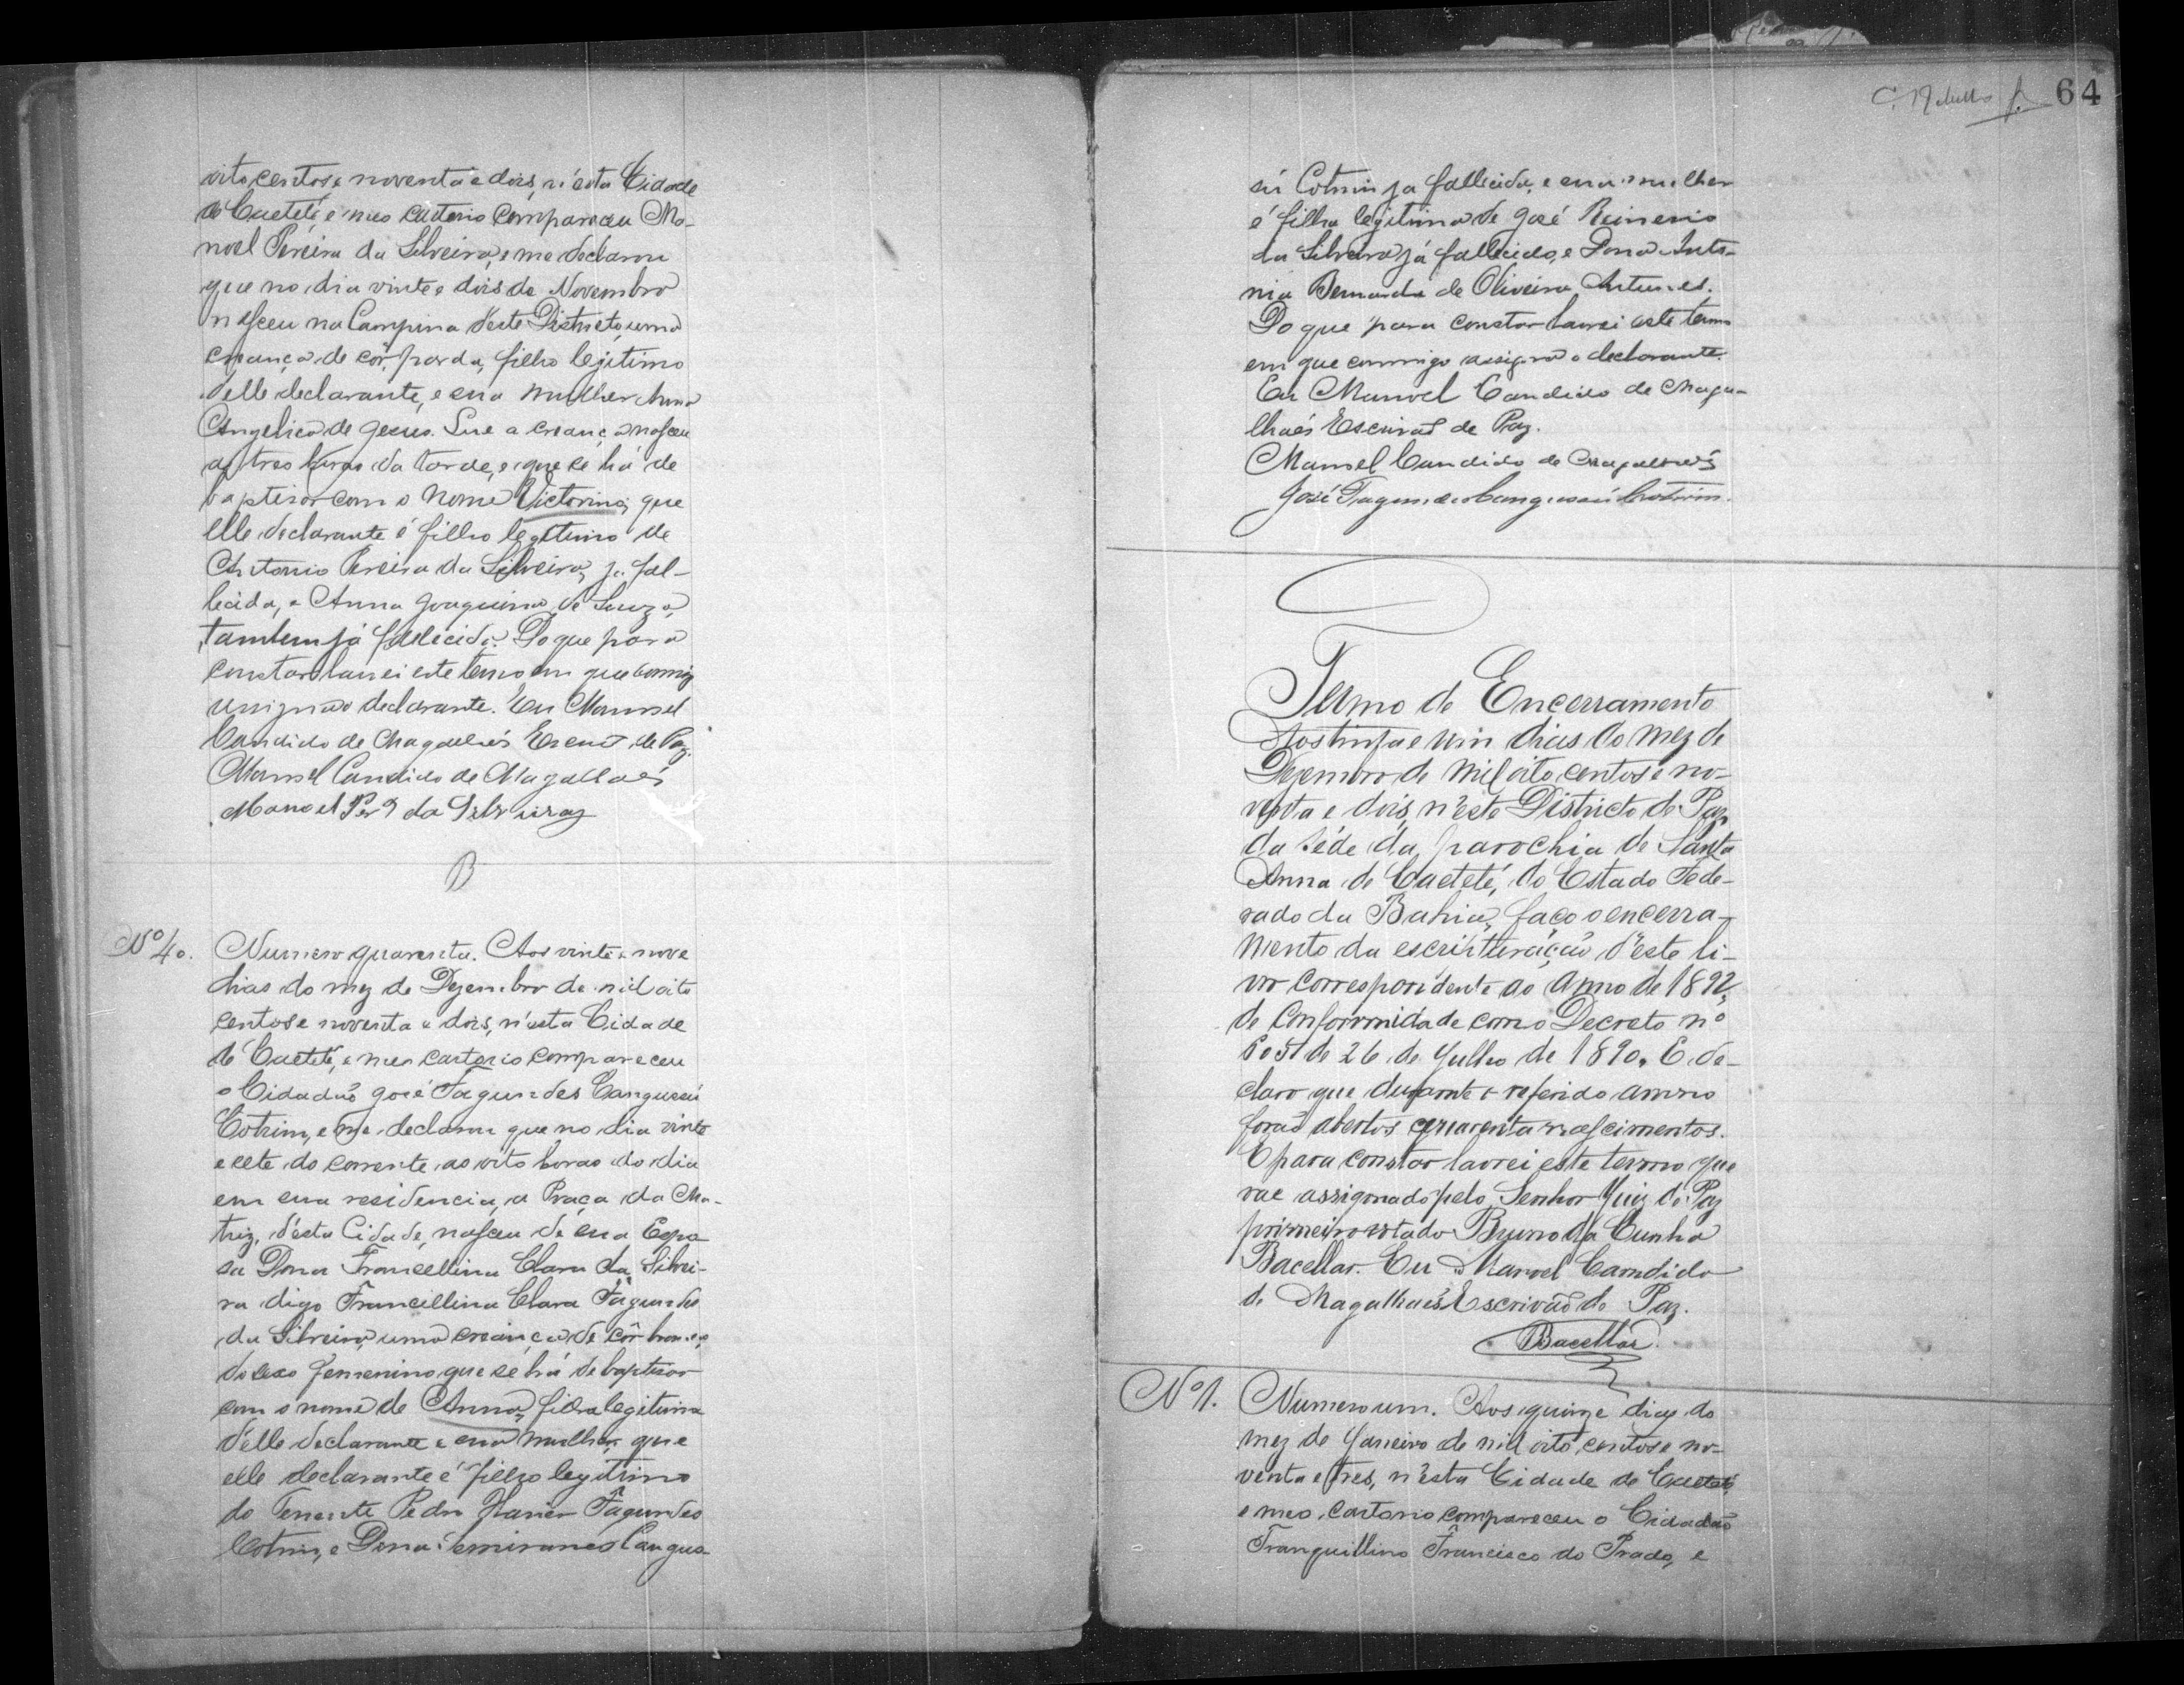 oito centos e noventa e dois, n'esta Cidade
de Caeteté e meo cartorio compareceu Ma-
noel Pereira da Silveira, e me declarou
que no dia vinte e dois de Novembro
nasceu na Campina d'este Districto uma
creança de côr parda, filho legitimo
delle declarante, e sua mulher Anna
Angelica de Jesus. Que a creança nasceu
as tres horas da tarde, e que se há de
baptisar com o nome Victorino; que
elle declarante é filho legitimo de
Antonio Pereira da Silveira, ja fal-
lecido, e Anna Joaquina de Souza,
tambem já fallecida. Do que para
constar lavrei este termo em que comigo
assigna o declarante. Eu Manoel
Candido de Magalhaés Escrivaõ de Paz.
Manoel Candido de Magalhaés
Manoel Perª da Silveira
B
Nº 40.
Numero quarenta. Aos vinte e nove
dias do mez de Dezembro de mil oito
centos e noventa e dois, n'esta Cidade
de Caeteté, e meo cartorio compareceu
o Cidadaõ José Fagundes Cangussú
Cotrim, e me declarou que no dia vinte
e sete do corrente, as oito horas do dia
em sua residencia, a Praça da Ma-
triz, d'esta Cidade, nasceu de sua Espo
sa Dona Francellina Clara da Silvei-
ra digo Francellina Clara Fagundes
da Silveira, uma creança de côr branca,
do sexo femenino que se há de baptisar
com o nome de Anna, filha legitima
d'elle declarante e sua mulher, que
elle declarante é filho legitimo
do Tenente Pedro Xavier Fagundes
Cotrim, e Dona Cangus-
64
sú Cotrim ja fallecida, e sua mulher
é filha legitima de José
da Silveira já fallecido, e Dona Anto-
nia Bernarda de Oliveira Antunes.
Do que para constar lavrei este termo
em que commigo assigna o declarante.
Eu Manoel Candido de Maga-
lhaés Escrivaõ de Paz.
Manoel Candido de Magalhaés
José Fagundes Cangussú Cotrim.
Termo de Encerramento
Aos trinta e um dias do mez de
Dezembro de mil oito centos e no-
venta e dois, n'este Districto de Paz
da séde da parochia de Santa
Anna de Caeteté, do Estado Fede-
rado da Bahia, faço o encerra-
mento da escrituração d'este li-
vro correspondente ao anno de 1892,
de conformidade com o Decreto nº
605 de 26 de Julho de 1890. E de-
claro que durante o referido anno
foraõ abertos quarenta nascimentos.
E para constar lavrei este termo que
vae assignado pelo Senhor Juiz de Paz
primeiro votado Bruno da Cunha
Bacellar. Eu Manoel Candido
de Magalhaés Escrivaõ de Paz.
Bacellar.
Nº 1.
Numero um. Aos quinze dias do
mez de Janeiro de mil oito centos e no-
venta e tres, n'esta Cidade de Caeteté
e meo cartorio compareceu o Cidadaõ
Tranquillino Francisco do Prado, e